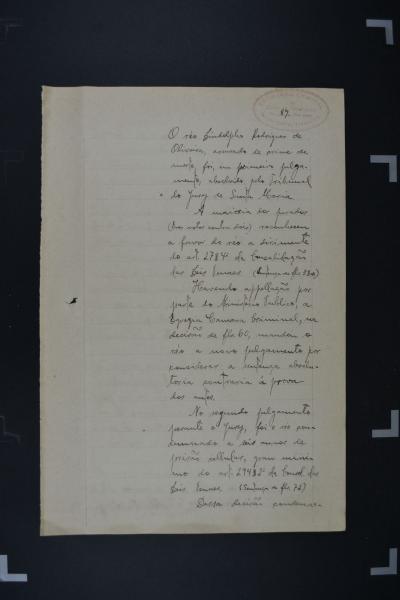 87.
O réo Lindolpho Rodrigues de
Oliveira, accusado de crime de
morte, foi, em primeiro julga-
mento, absolvido pelo Tribunal
do Jury de Santa Maria
A maioria dos jurados
(tres votos contra dois) reconheceu
a favor do réo a dirimente
do art. 27 § 4º da Consolidação
das Leis Penaes (Sentença de fls. 53v)
Havendo appellação por
parte do Ministerio Publico, a
Egregia Camara Criminal, na
decisão de fls 60, mandou o
réo a novo julgamento por
considerar a sentença absolu-
toria contraria á prova
dos autos.
No segundo julgamento
perante o Jury, foi o réo con-
demnado a seis annos de
prisão cellular, gráu minimo
do art. 294 § 2º da Consol. das
Leis Penaes (Sentença de fls. 72)
Dessa decisão condemna-